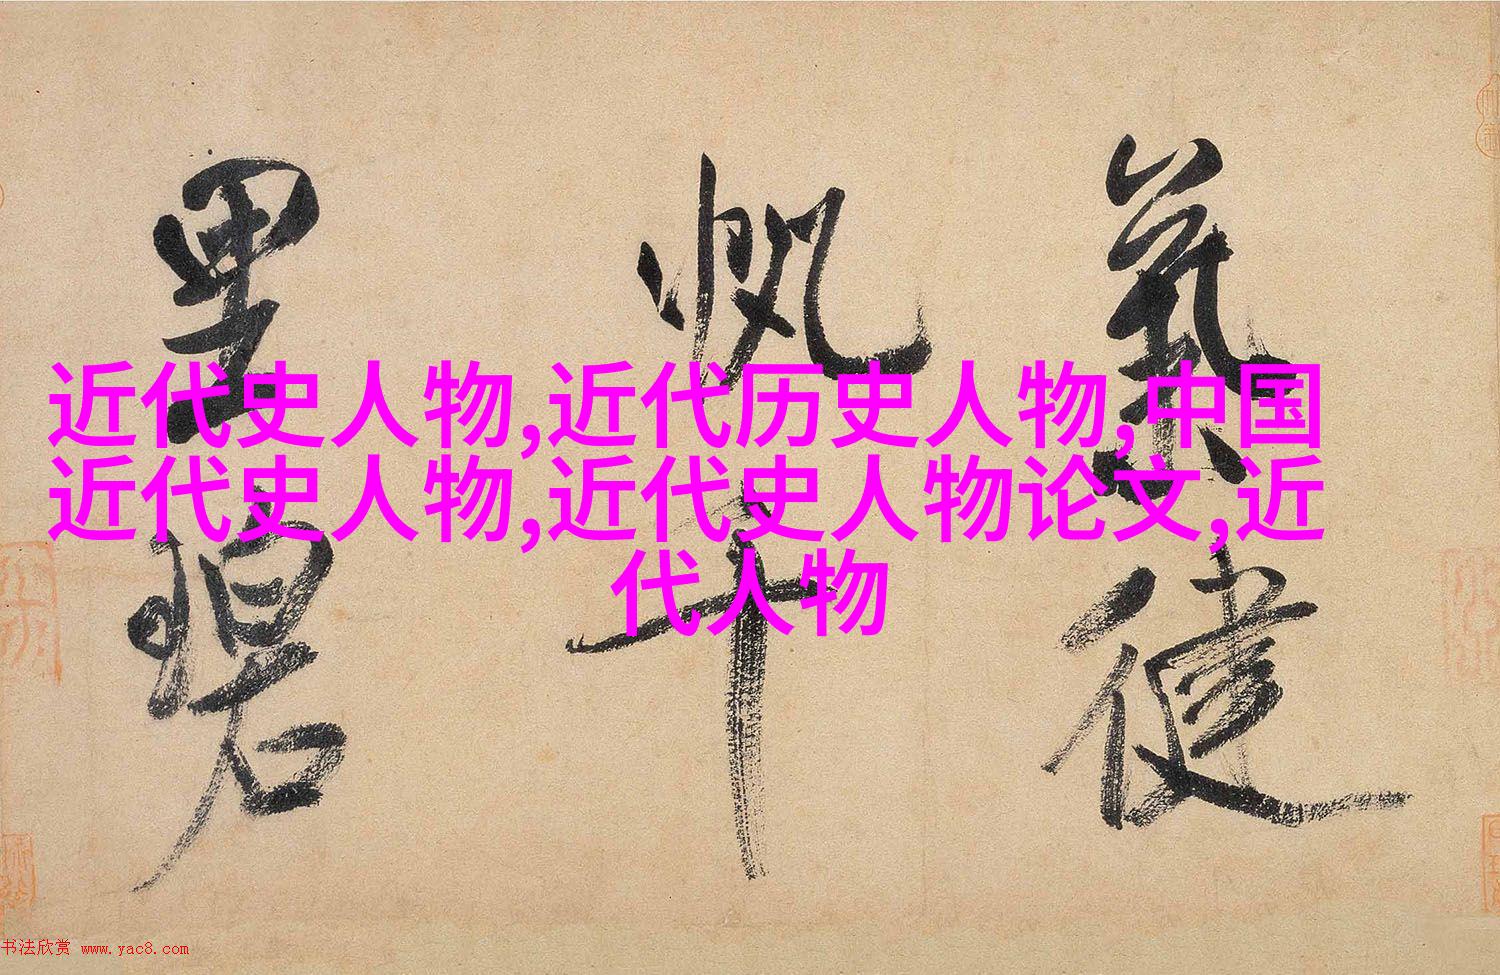 氣健
帆千
里碧
近代史人物,近代历史人物,中国
近代史人物,近代史人物论文,近
代人物
书法欣赏 www.yac8.com